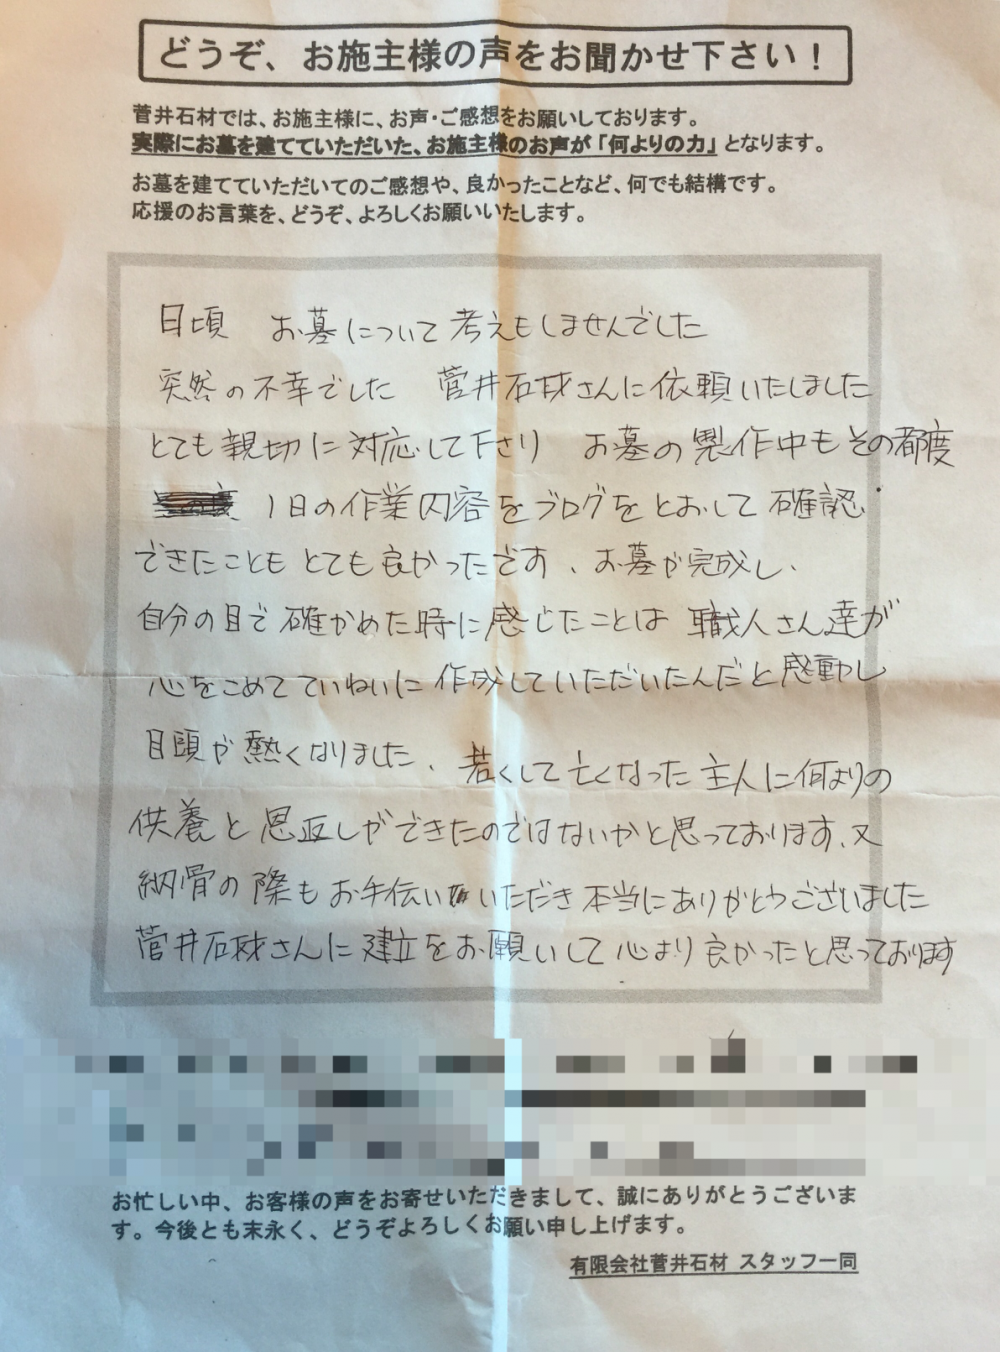 どうぞ、お施主様の声をお聞かせ下さい！
菅井石材では、お施主様に、お声・ご感想をお願いしております。
実際にお墓を建てていただいた、お施主様のお声が「何よりの力」となります。
お墓を建てていただいてのご感想や、良かったことなど、何でも結構です。
応援のお言葉を、どうぞ、よろしくお願いいたします。
日頃　お墓について考えもしませんでした
突然の不幸でした　菅井石材さんに依頼いたしました
とても親切に対応して下さり　お墓の製作中もその都度
1日の作業内容をブログをとおして確認
できたことも とても良かったです、お墓が完成し、
自分の目で確かめた時に感じたことは 職人さん達が
心をこめてていねいに作成していただいたんだと感動し
目頭が熱くなりました、若くして亡くなった主人に何よりの
供養と恩返しができたのではないかと思っております、又
納骨の際もお手伝いいただき本当にありがとうございました
菅井石材さんに建立をお願いして心より良かったと思っております
お忙しい中、お客様の声をお寄せいただきまして、誠にありがとうございま
す。今後とも末永く、どうぞよろしくお願い申し上げます。
有限会社菅井石材 スタッフ一同